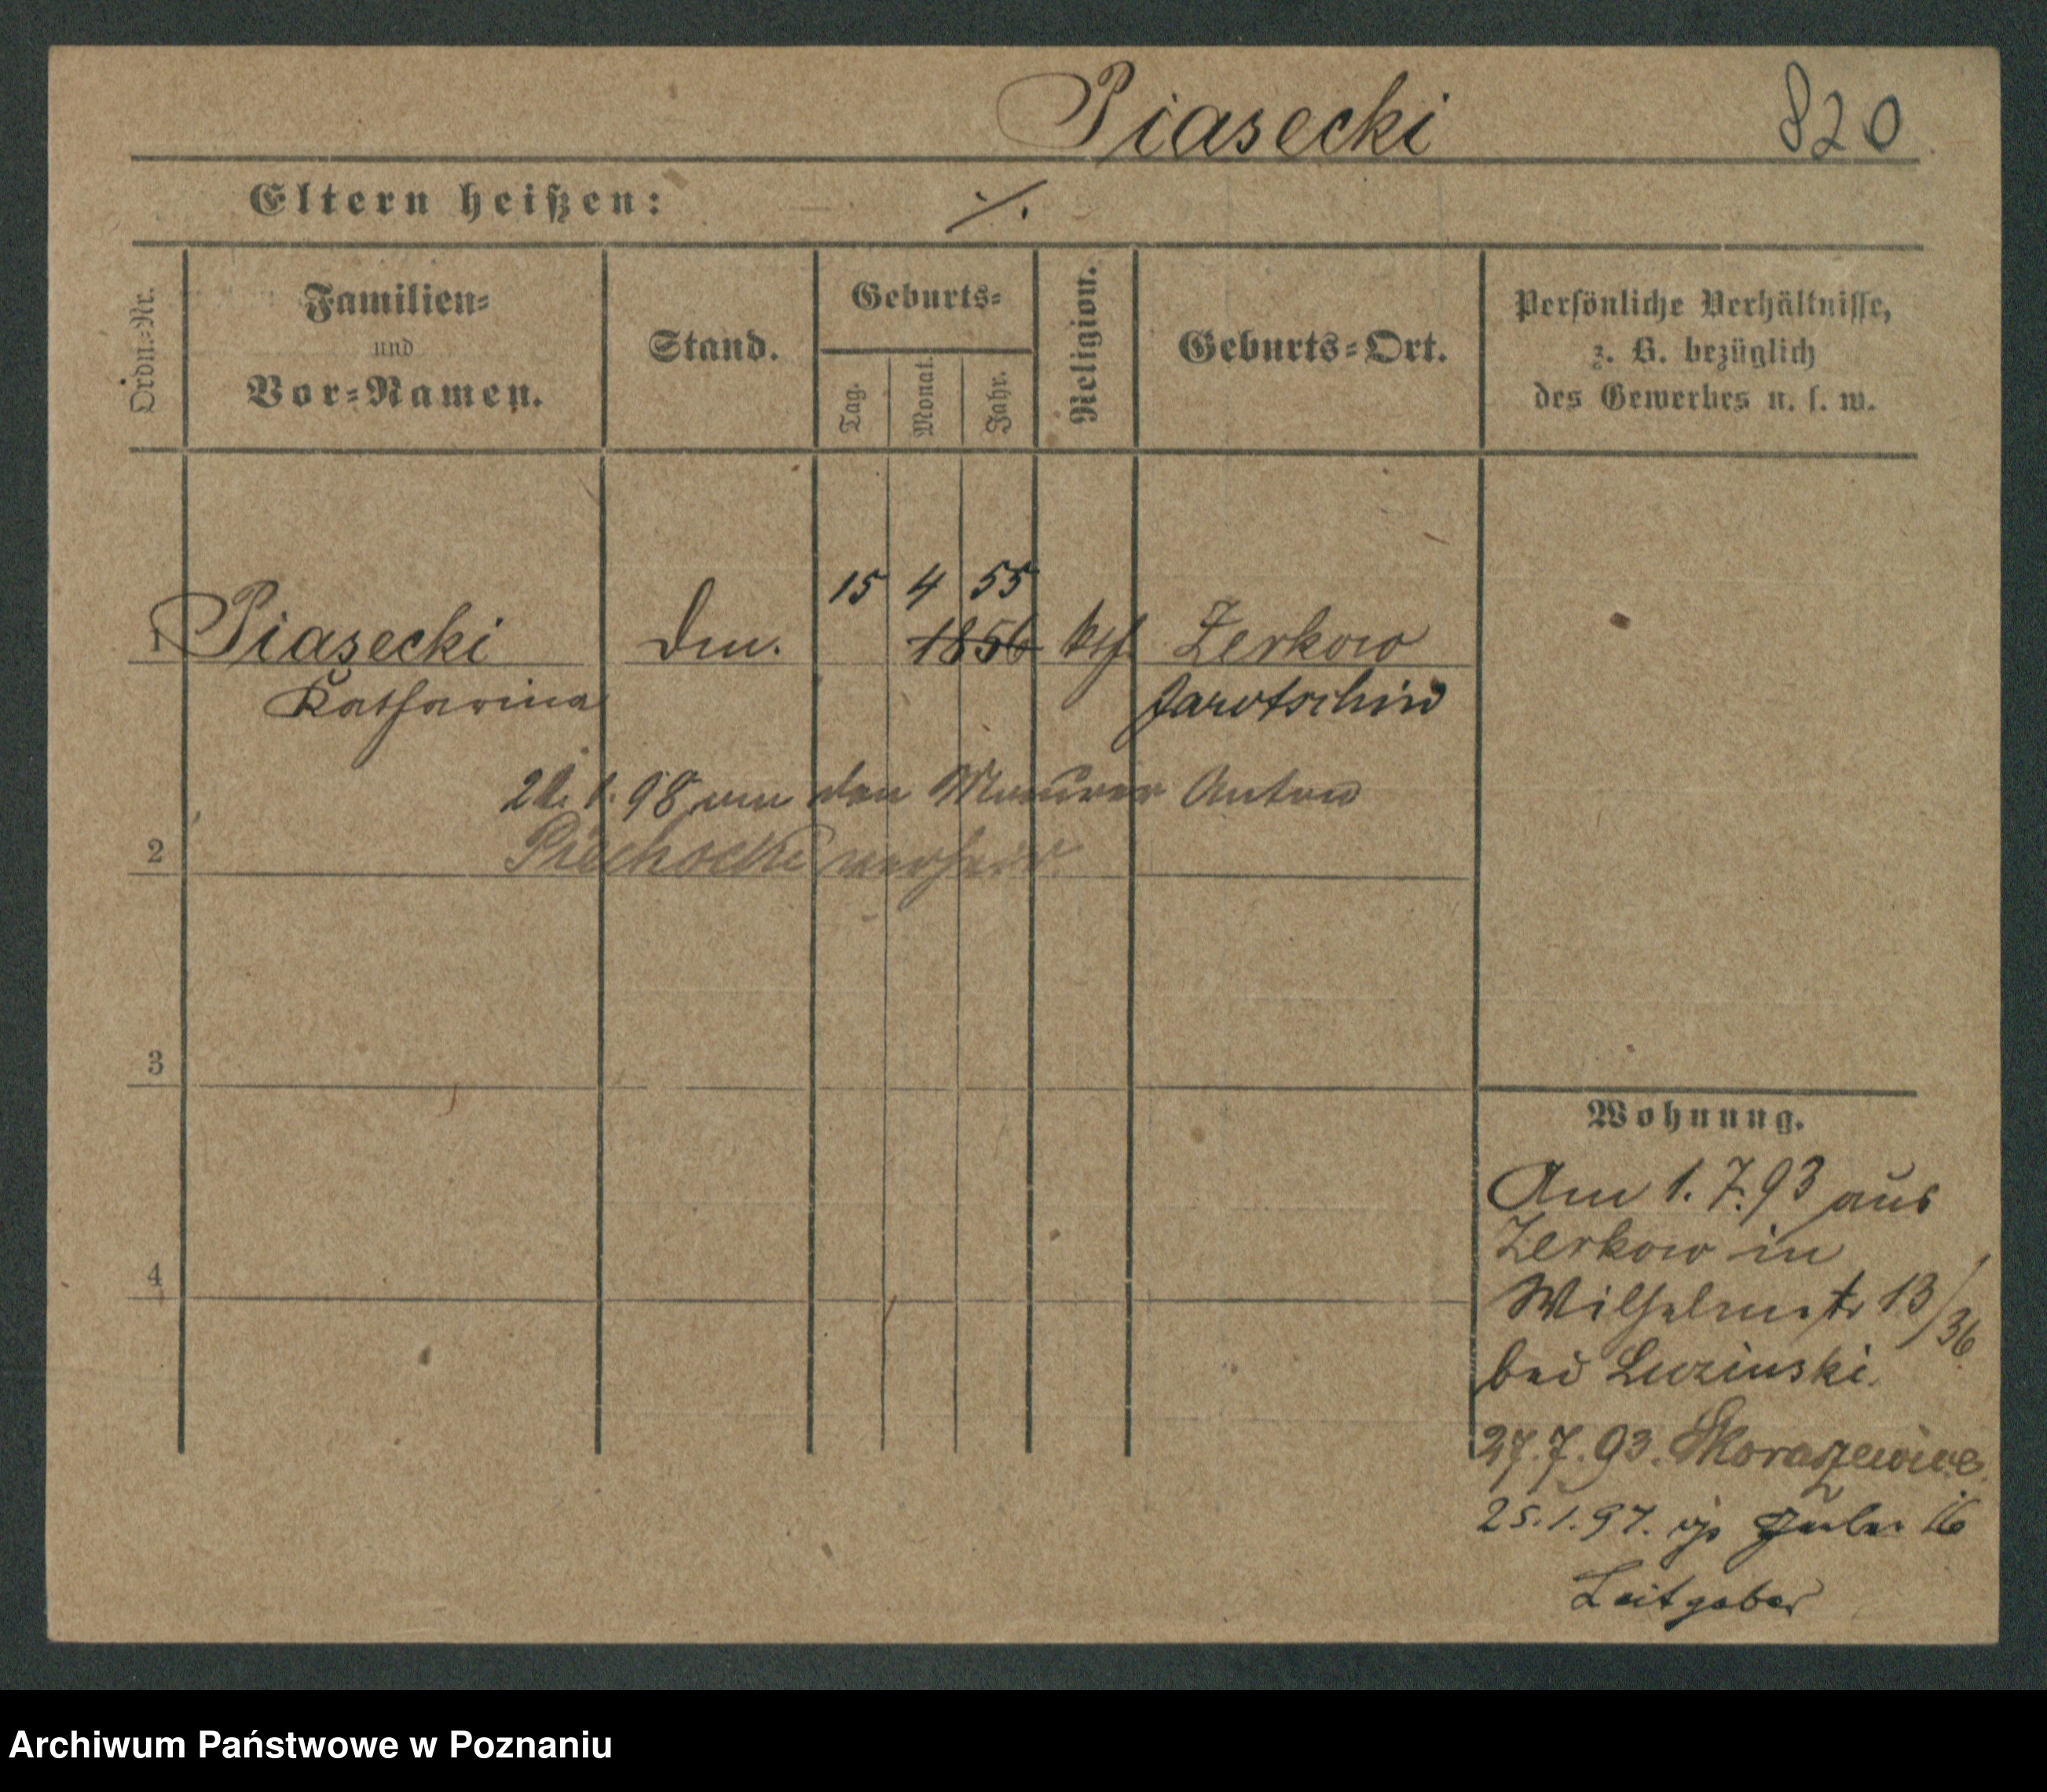 Piasecki 820
Eltern heißen: ./.
Ordn.-Nr.
Familien-
und
Vor-Namen.
Stand.
Geburts-
Tag.
Monat.
Jahr.
Religion.
Geburts-Ort.
Persönliche Verhältnisse,
z. B. bezüglich
des Gewerbes u. s. w.
15 4 55
1 Piasecki 1856 kth. Zerkow
Katharina Jarotschin
1. 98 den Maurer Anton
2 Piechocki verheir.
3
4
Wohnung.
Am 1. 7. 93 aus
Zerkow in
Wilhelmstr 13/36
bei
27. 7. 93.
25. 1. 97. 16
Leitgeber
Archiwum Państwowe w Poznaniu